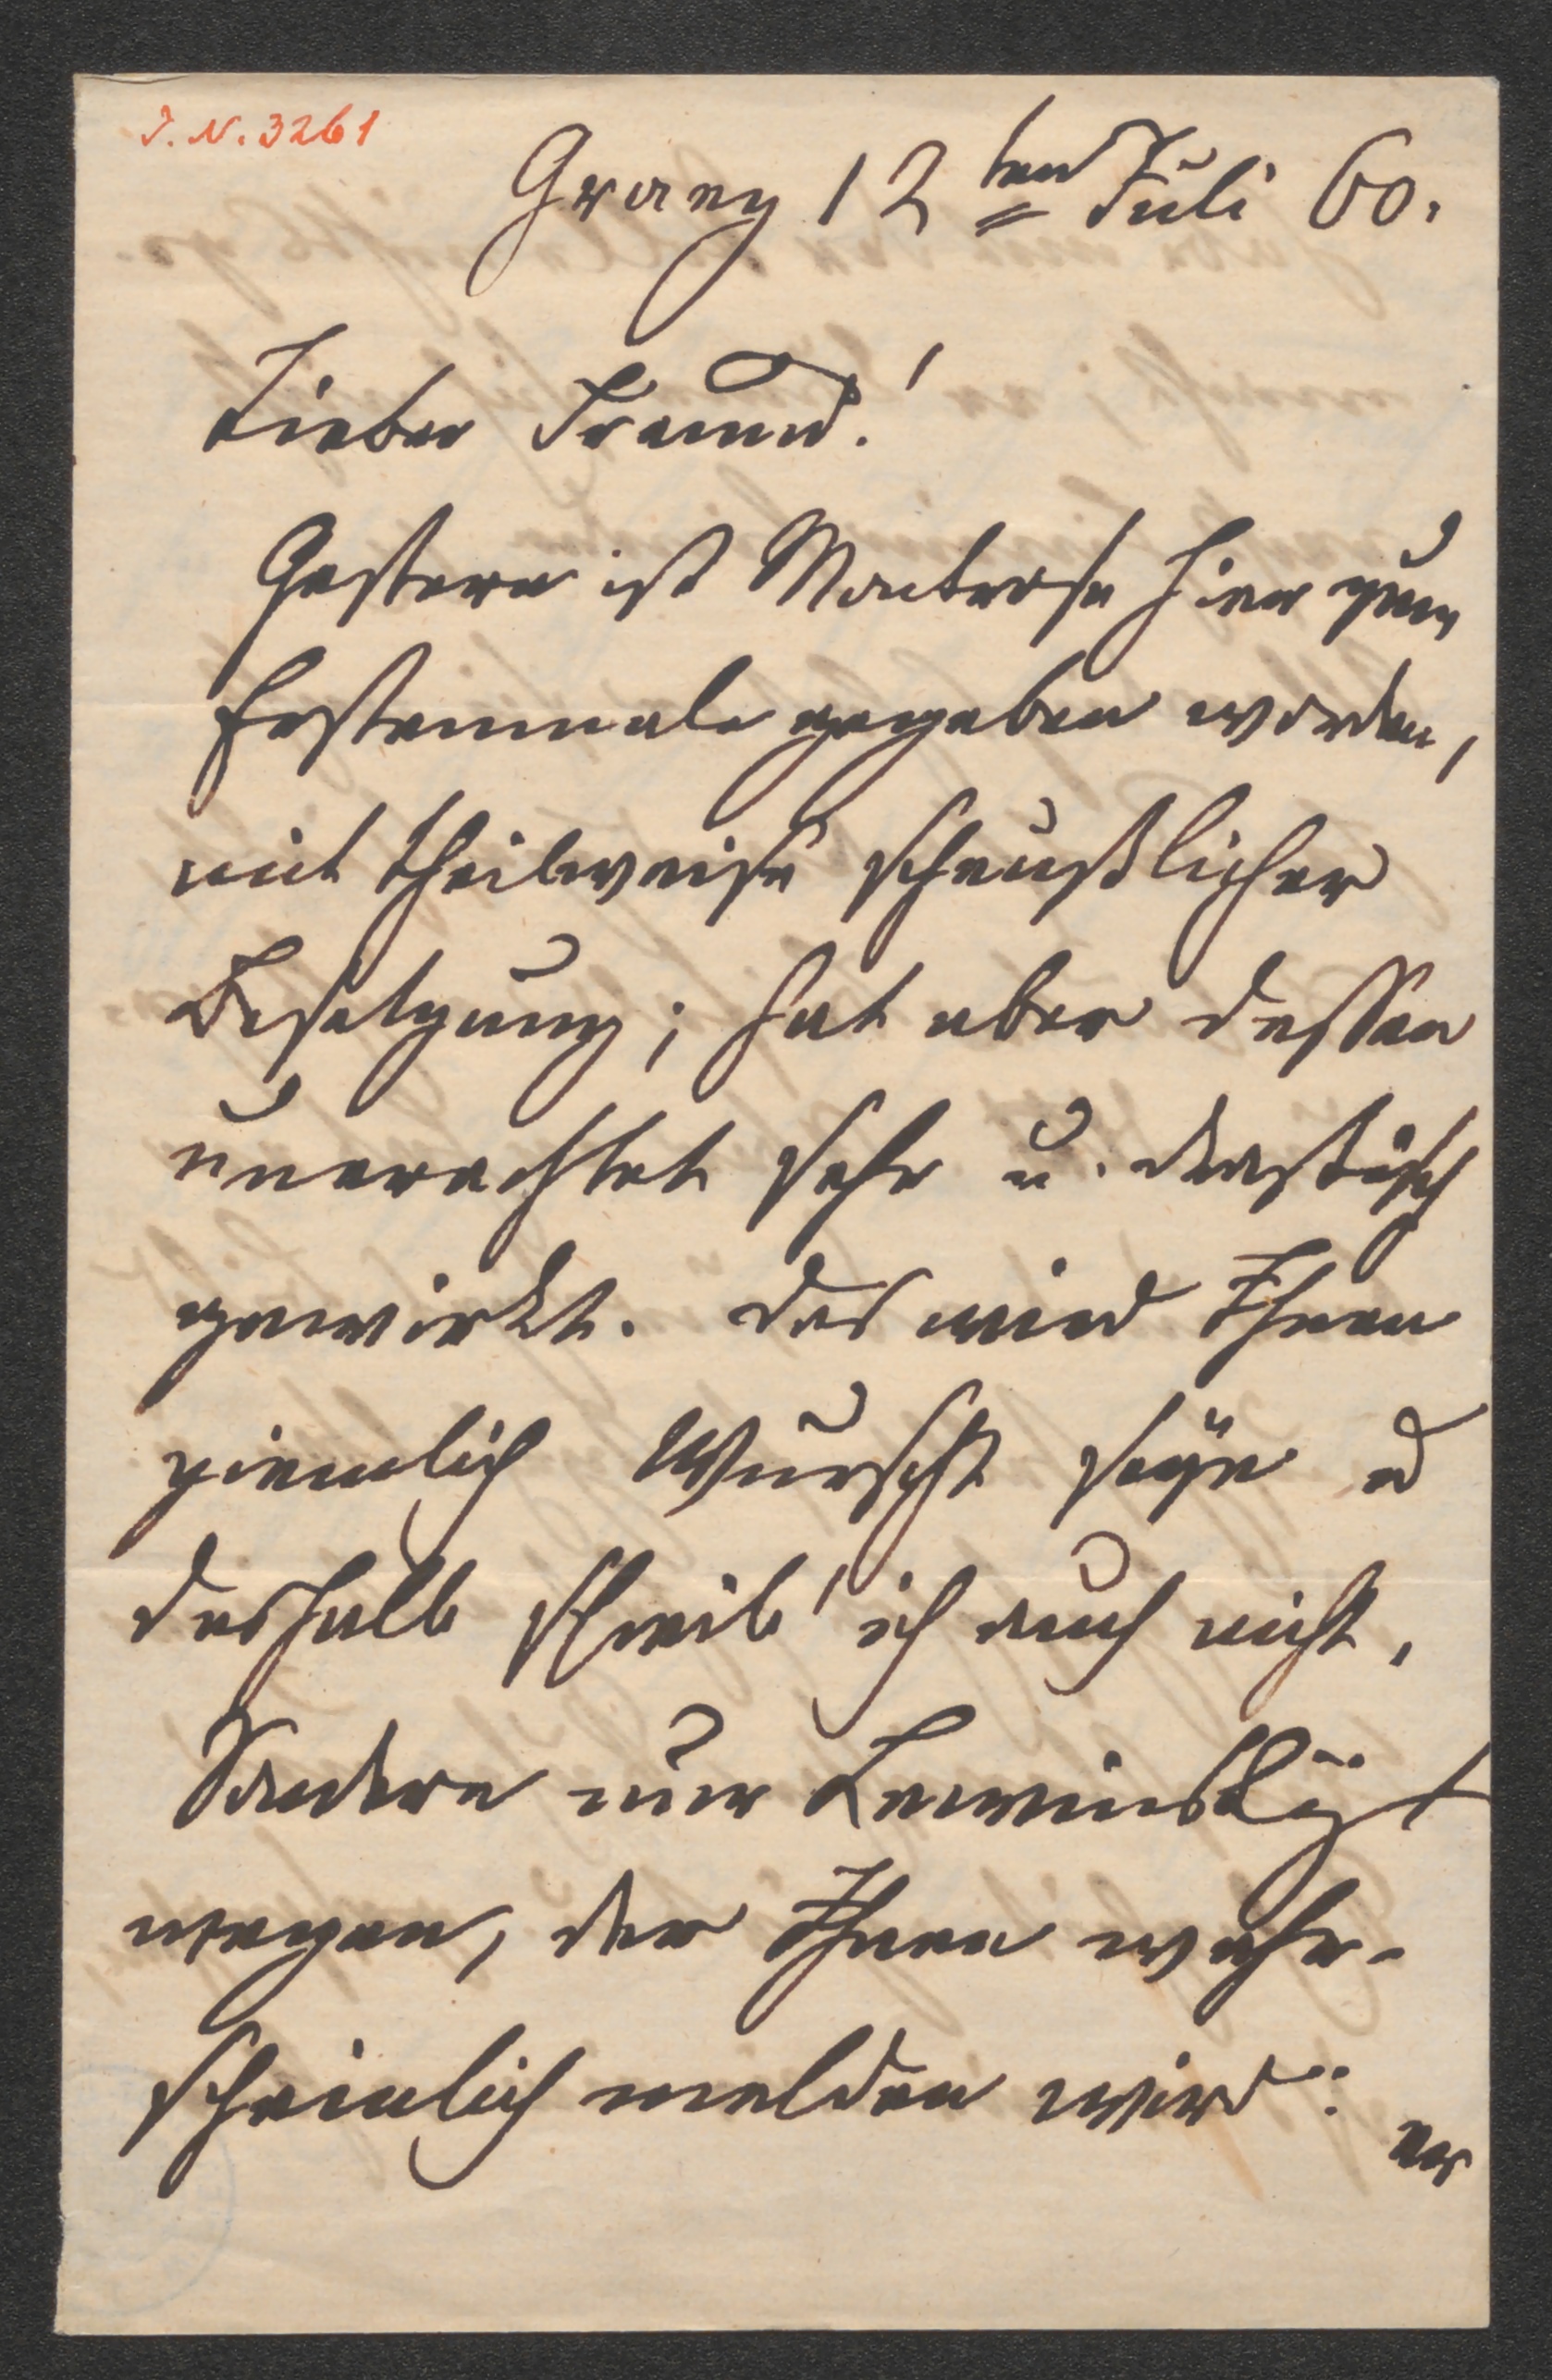 J. N. 3261
Graez 12ten Juli 60.
Lieber Freund!
Gestern ist Montrose hier zum
Erstenmale gegeben worden,
mit theilweise scheußlicher
Besetzung; hat aber dessen
unerachtet sehr u. drastisch
gewirkt. Das wird Ihnen
ziemlich Wurscht seÿn u
deshalb schreib' ich auch nicht,
Sondern nur Lewinskÿ's
wegen, der Ihnen wahr-
scheinlich melden wird: er